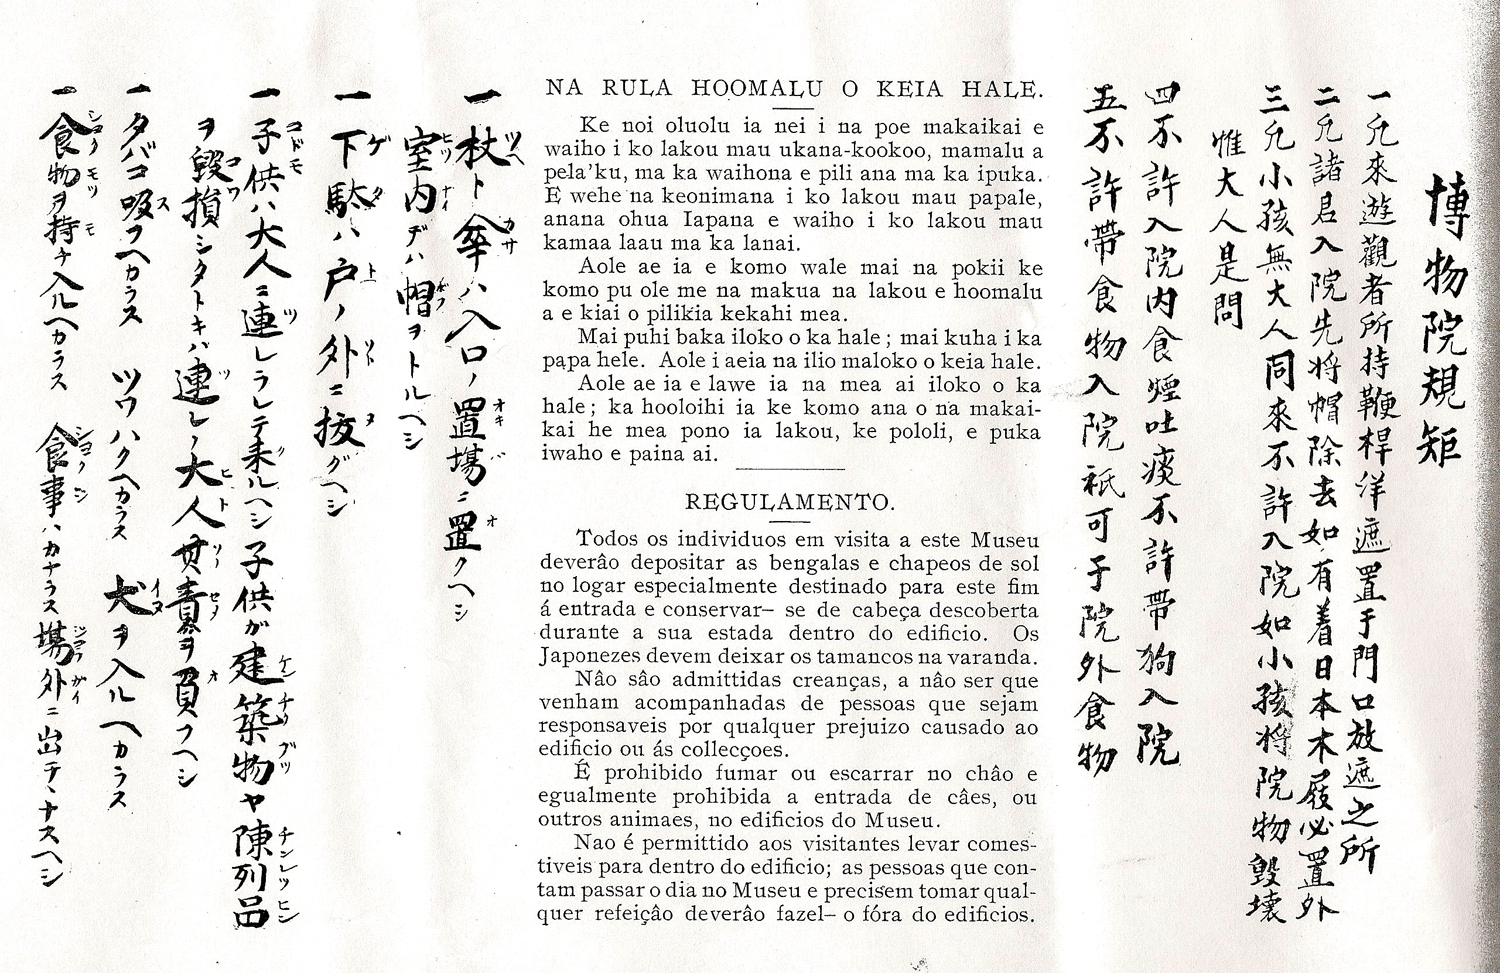 博物院規矩
一凡來遊觀者所持鞭桿洋遮置于門口放遮之所
二凡諸君入院先將帽除去如有着日本木屐必置外
三凡小孩無大人同來不許入院如小孩將院物毀壞
惟大人是問
四不許入院内食煙吐痰不許帶狗入院
五不許帶食物入院祇可于院外食物
NA RULA HOOMALU O KEIA HALE.
Ke noi oluolu ia nei i na poe makaikai e
waiho i ko lakou mau ukana-kookoo, mamalu a
pela'ku, ma ka waihona e pili ana ma ka ipuka.
E wehe na keonimana i ko lakou mau papale,
anana ohua Iapana e waiho i ko lakou mau
kamaa laau ma ka lanai.
Aole ae ia e komo wale mai na pokii ke
komo pu ole me na makua na lakou e hoomalu
a e kiai o pilikia kekahi mea.
Mai puhi baka iloko o ka hale; mai kuha i ka
papa hele. Aole i aeia na ilio maloko o keia hale.
Aole ae ia e lawe ia na mea ai iloko o ka
hale; ka hooloihi ia ke komo ana o na makai-
kai he mea pono ia lakou, ke pololi, e puka
iwaho e paina ai.
REGULAMENTO.
Todos os individuos em visita a este Museu
deverâo depositar as bengalas e chapeos de sol
no logar especialmente destinado para este fim
á entrada e conservar- se de cabeça descoberta
durante a sua estada dentro do edificio. Os
Japonezes devem deixar os tamancos na varanda.
Nâo sâo admittidas creanças, a nâo ser que
venham acompanhadas de pessoas que sejam
responsaveis por qualquer prejuizo causado ao
edificio ou ás collecçoes.
É prohibido fumar ou escarrar no châo e
egualmente prohibida a entrada de câes, ou
outros animaes, no edificios do Museu.
Nao é permittido aos visitantes levar comes-
tiveis para dentro do edificio; as pessoas que con-
tam passar o dia no Museu e precisem tomar qual-
quer refeiçâo deverâo fazel- o fóra do edificios.
一杖ト傘ハ入口ノ置場ニ置クヘシ
室内ヂハ帽ヲトルヘシ
一下駄ハ戸ノ外ニ抜グヘシ
一子供ハ大人ニ連レラレテ来ルヘシ子供ガ建築物ヤ陳列品
ヲ毀損シタトキハ連レノ大人其責ヲ負フヘシ
一タバコ吸フヘカラス ツワハクヘカラス 犬ヲ入ルヘカラス
一食物ヲ持チ入ルヘカラス 食事ハカナラス場外ニ出テヽナスヘシ